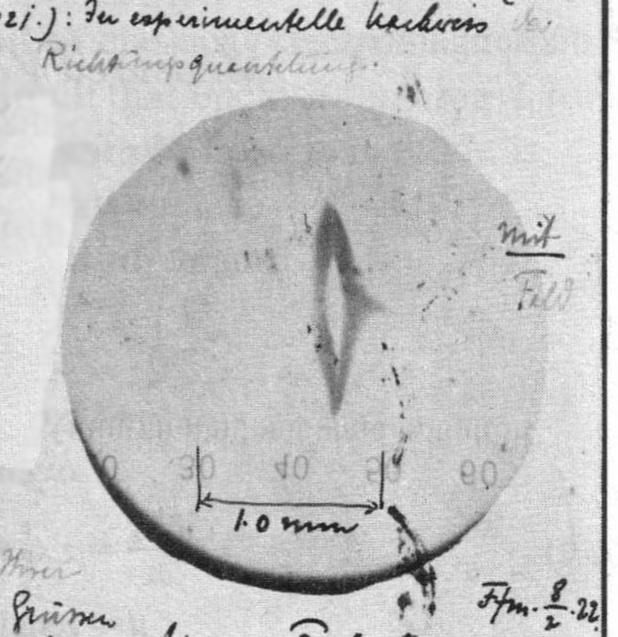 21.): Der experimentelle Nachweis der
Richtungsquantelung.
mit
Feld
30 40 50 60
1.0 mm
Ihrer
Grüssen
Ffm. 8/2.22.